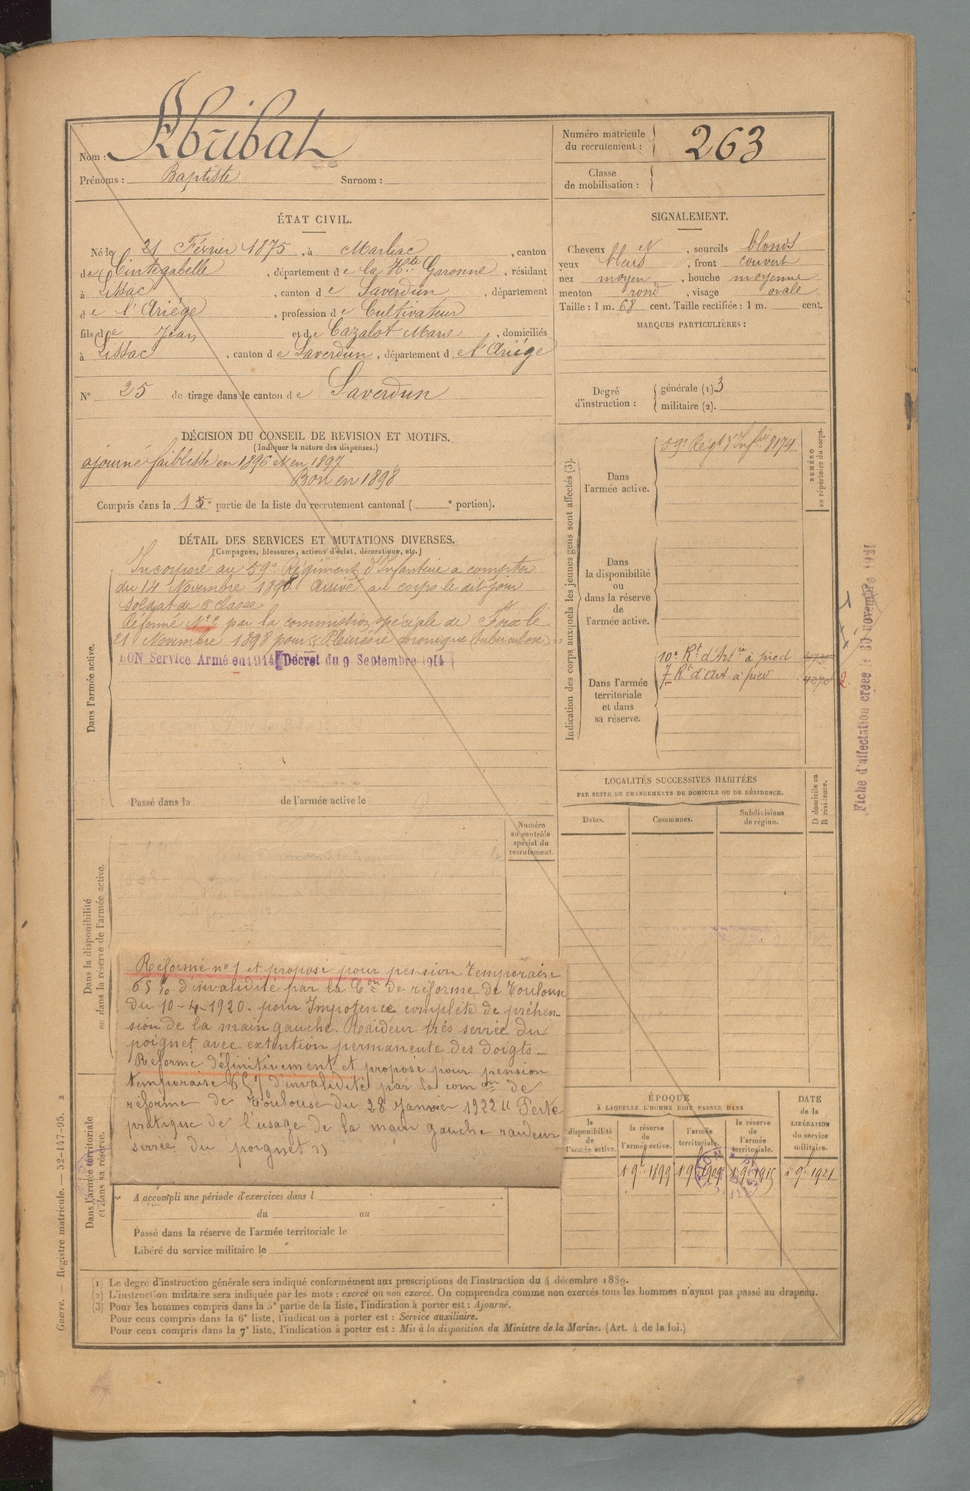 Nom : Abribat
Prénoms : Baptiste Surnom :
Numéro matricule du recrutement : 263
Classe de mobilisation :
ÉTAT CIVIL.
Né le 21 Février 1875, à Marliac, canton
de Cintegabelle, département de la Hte Garonne, résidant
à Lissac, canton de Saverdun, département
de l'Ariège, profession de Cultivateur
fils de Jean et de Cazalot Marie, domiciliés
à Lissac, canton de Saverdun, département de l'Ariège
N° 25 de tirage dans le canton de Saverdun
SIGNALEMENT.
Cheveux, sourcils blonds
yeux bleus, front couvert
nez moyen, bouche moyenne
menton rond, visage ovale
Taille : 1 m. 68 cent. Taille rectifiée : 1 m. cent.
MARQUES PARTICULIÈRES :
Degré d'instruction : générale (1) 3
militaire (2).
DÉCISION DU CONSEIL DE REVISION ET MOTIFS.
(Indiquer la nature des dispenses.)
ajourné faiblesse en 1896 et en 1897
Bon en 1898
Compris dans la partie de la liste du recrutement cantonal ( e portion).
DÉTAIL DES SERVICES ET MUTATIONS DIVERSES.
(Campagnes, blessures, actions d'éclat, décorations, etc.)
Dans l'armée active.
Incorporé au 59e Régiment d'Infanterie à compter
du 14 Novembre 1898. Arrivé au corps le dit jour
soldat de 2e classe
Réformé N° 2 par la commission spéciale de Foix le
21 Novembre 1898 pour "Pleurésie chronique (tuberculose)"
BON Service Armé en 1914 Décret du 9 Septembre 1914
Passé dans la de l'armée active le
Indication des corps auxquels les jeunes gens sont affectés (3).
Dans l'armée active.
59e Régt d'Infie 8174
NUMÉRO au répertoire du corps.
Dans la disponibilité ou dans la réserve de l'armée active.
Dans l'armée territoriale et dans sa réserve.
10e Rt d'Artie à pied
7e Rt d'Art. à pied
Fiche d'affectation créée le 30 novembre 1921
LOCALITÉS SUCCESSIVES HABITÉES
PAR SUITE DE CHANGEMENTS DE DOMICILE OU DE RÉSIDENCE.
Dates. Communes. Subdivisions de région.
D domicile ou R résidence.
Numéro au contrôle spécial du recrutement.
Dans la disponibilité ou dans la réserve de l'armée active.
Réformé n° 1 et proposé pour pension temporaire
65 % d'invalidité par la Con de réforme de Toulouse
du 10-4-1920. pour Impotence complète de préhen-
sion de la main gauche. Raideur très serrée du
poignet avec extention permanente des doigts_
Réformé définitivement et proposé pour pension
temporaire 65 % d'invalidité par la comon de
réforme de Toulouse du 28 Janvier 1922 "Perte
pratique de l'usage de la main gauche raideur
serrée du poignet"
Dans l'armée territoriale et dans sa réserve.
A accompli une période d'exercices dans l
du au
Passé dans la réserve de l'armée territoriale le
Libéré du service militaire le
ÉPOQUE
À LAQUELLE L'HOMME DOIT PASSER DANS
la disponibilité de l'armée active. la réserve de l'armée active. l'armée territoriale. la réserve de l'armée territoriale.
DATE de la LIBÉRATION du service militaire.
1 9e 1899 1 9e 1909 1 9e 1915 1 9e 1921
(1) Le degré d'instruction générale sera indiqué conformément aux prescriptions de l'instruction du 4 décembre 1889.
(2) L'instruction militaire sera indiquée par les mots : exercé ou non exercé. On comprendra comme non exercés tous les hommes n'ayant pas passé au drapeau.
(3) Pour les hommes compris dans la 5e partie de la liste, l'indication à porter est : Ajourné.
Pour ceux compris dans la 6e liste, l'indication à porter est : Service auxiliaire.
Pour ceux compris dans la 7e liste, l'indication à porter est : Mis à la disposition du Ministre de la Marine. (Art. 4 de la loi.)
Guerre. — Registre matricule. — 52-147-95. 2